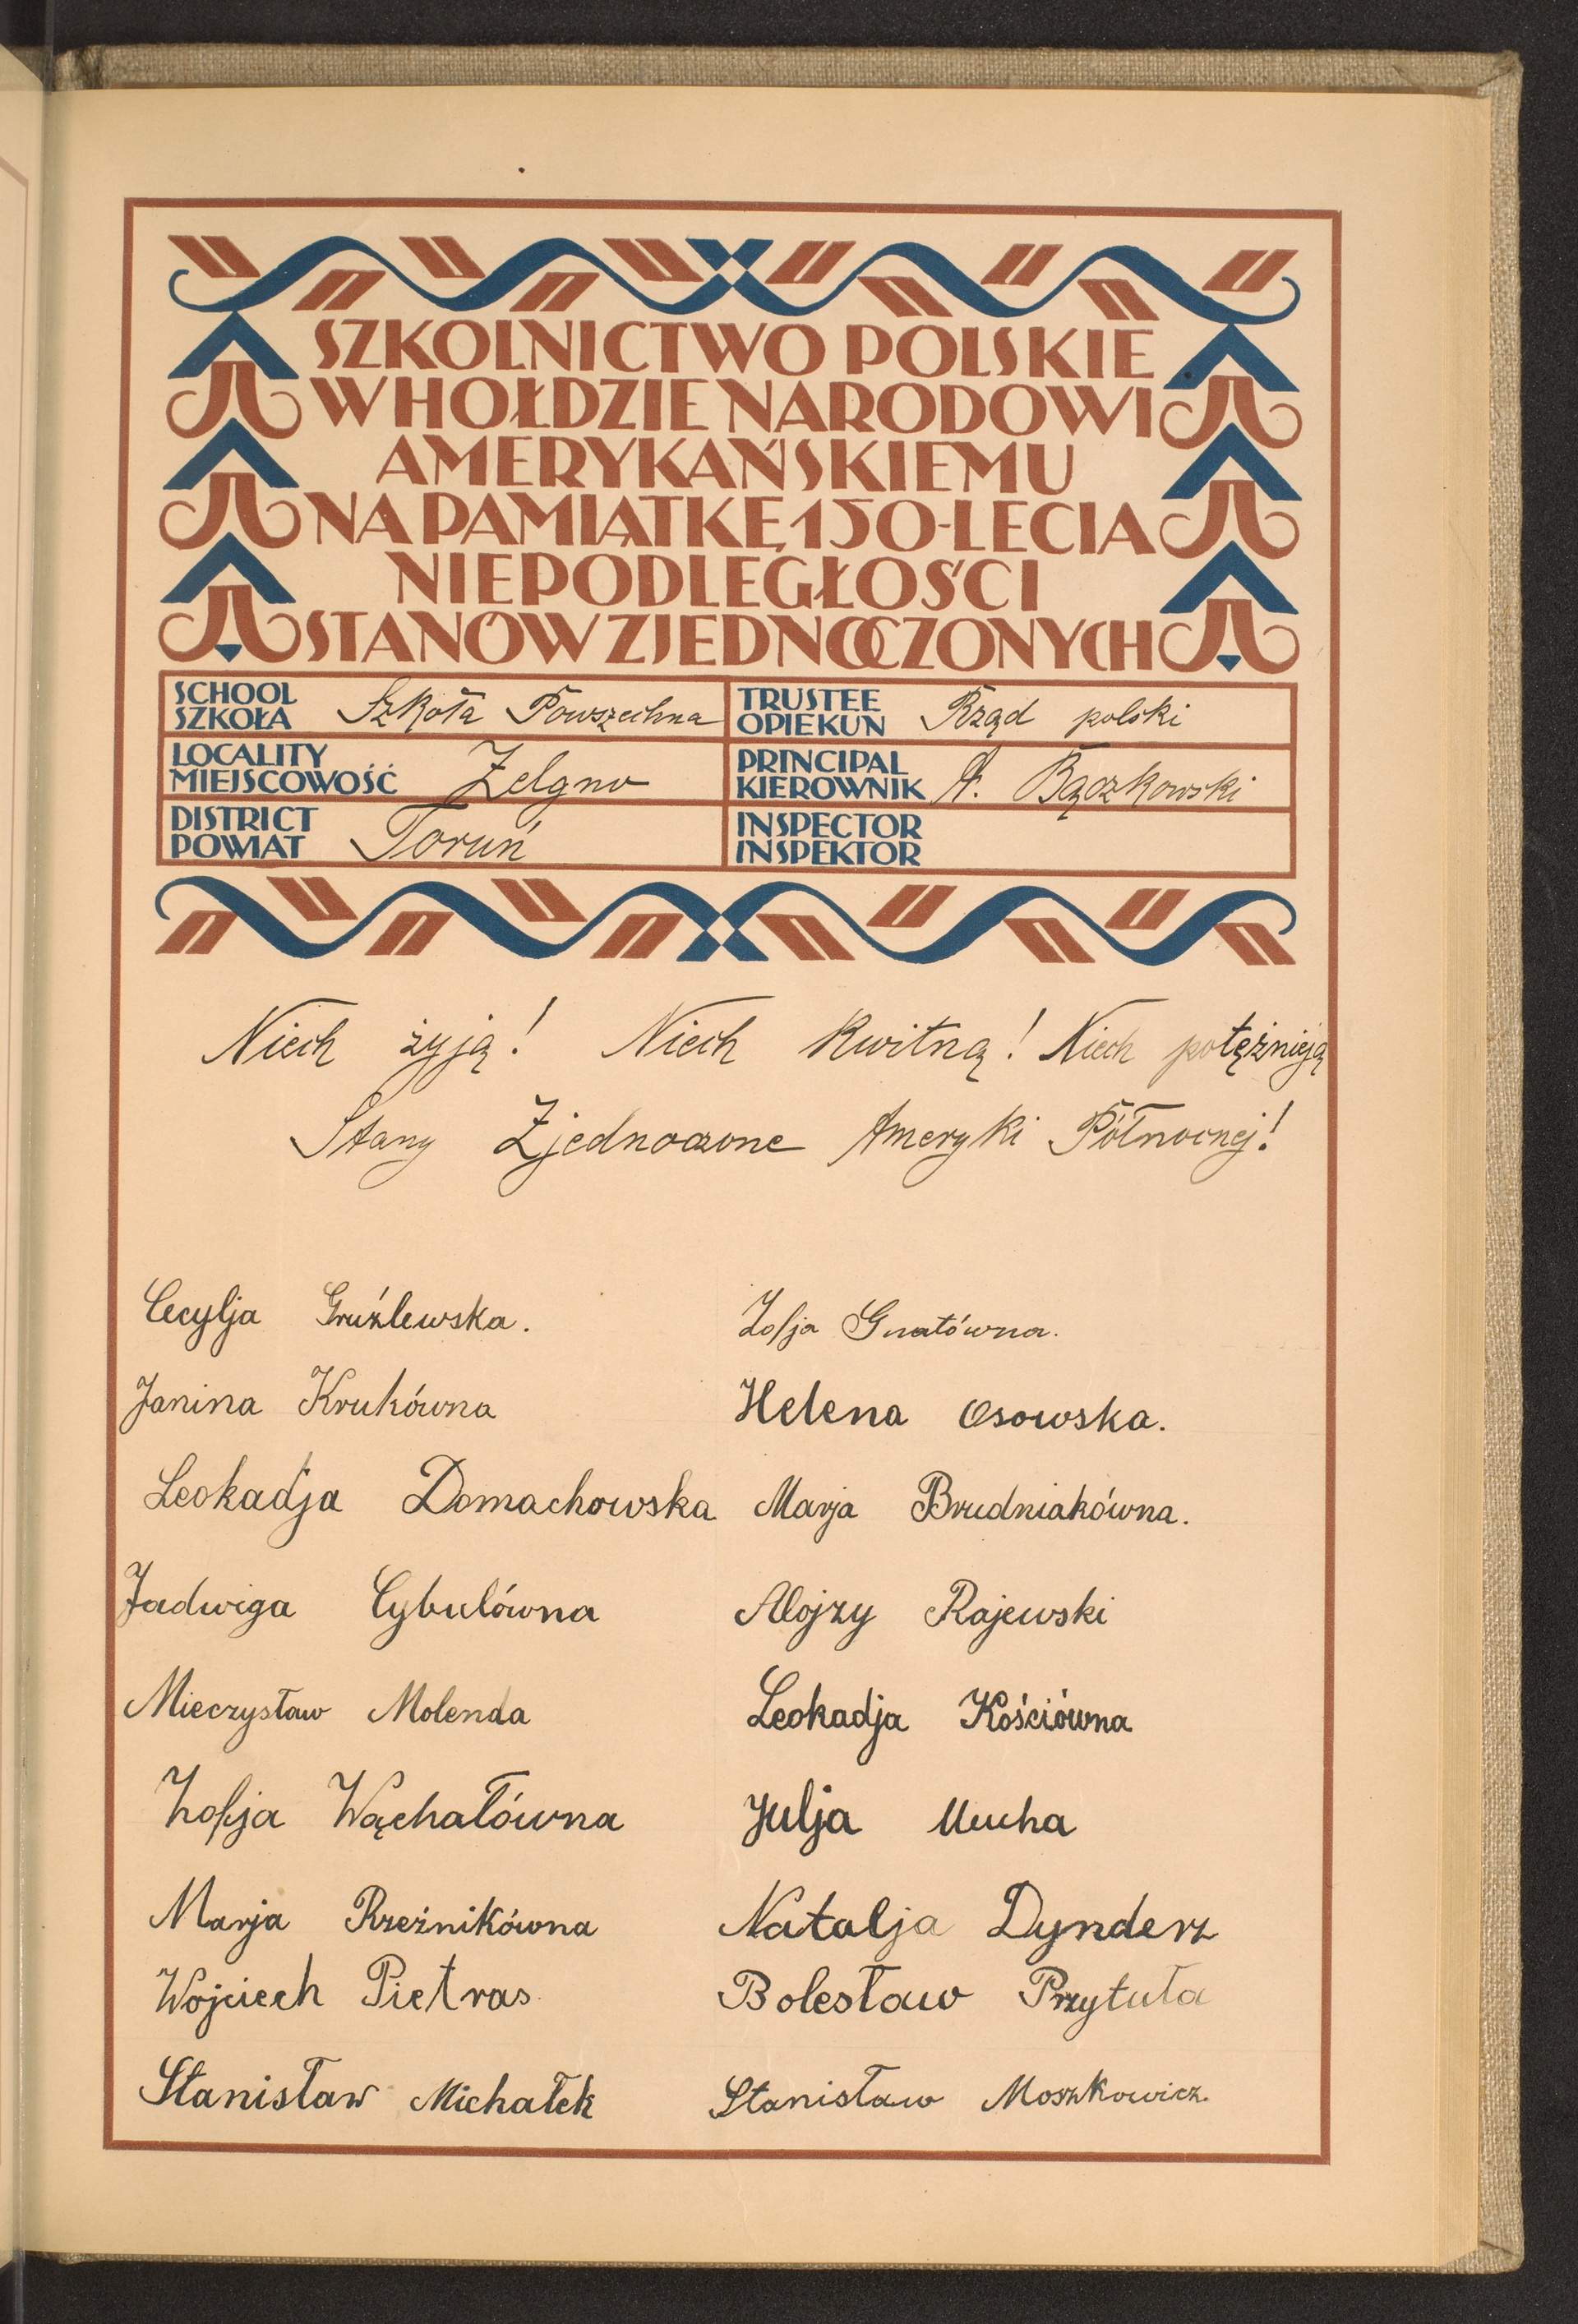 SZKOLNICTWO POLSKIE
W HOŁDZIE NARODOWI
AMERYKAŃSKIEMU
NA PAMIĄTKĘ 150-LECIA
NIEPODLEGŁOŚCI
STANÓW ZJEDNOCZONYCH
SCHOOL
SZKOŁA Szkoła Powszechna
TRUSTEE
OPIEKUN Rząd polski
LOCALITY
MIEJSCOWOŚĆ Zelgno
PRINCIPAL
KIEROWNIK A. Bączkowski
DISTRICT
POWIAT Toruń
INSPECTOR
INSPEKTOR
Niech żyją! Niech kwitną! Niech potężnieją
Stany Zjednoczone Ameryki Północnej!
Cecylja Gruźlewska.
Zofja Gnatówna.
Janina Krukówna
Helena Osowska.
Leokadja Domachowska
Marja Brudniakówna.
Jadwiga Cybulówna
Alojzy Rajewski
Mieczysław Molenda
Leokadja Kościówna
Zofja Wąchałówna
Julja Mucha
Marja Rzeźnikówna
Natalja Dynderz
Wojciech Pietras
Bolesław Przytuła
Stanisław Michałek
Stanisław Moszkowicz